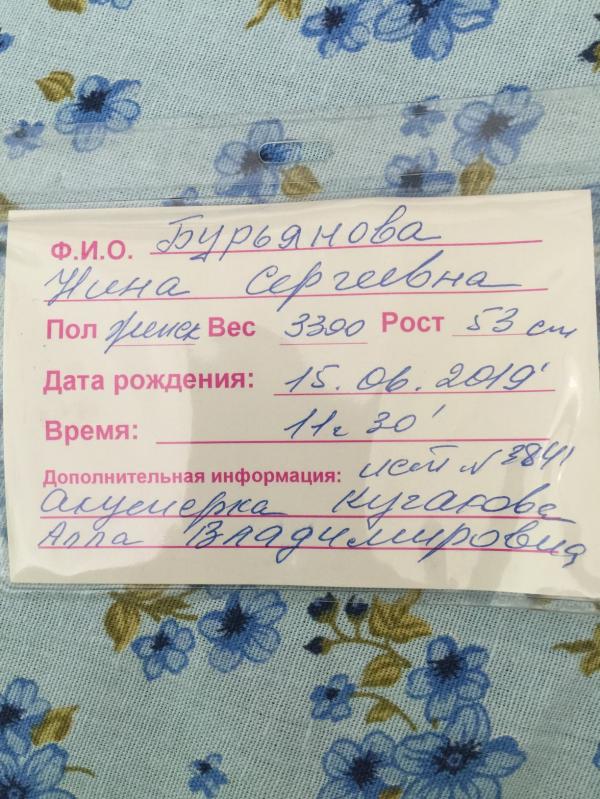 Ф.И.О. Бурьянова
Нина Сергеевна
Пол женск Вес 3390 Рост 53 см
Дата рождения: 15.06.2019'
Время: 11ч 30'
Дополнительная информация: ист N 3841
Акушерка Кугакова
Алла Владимировна